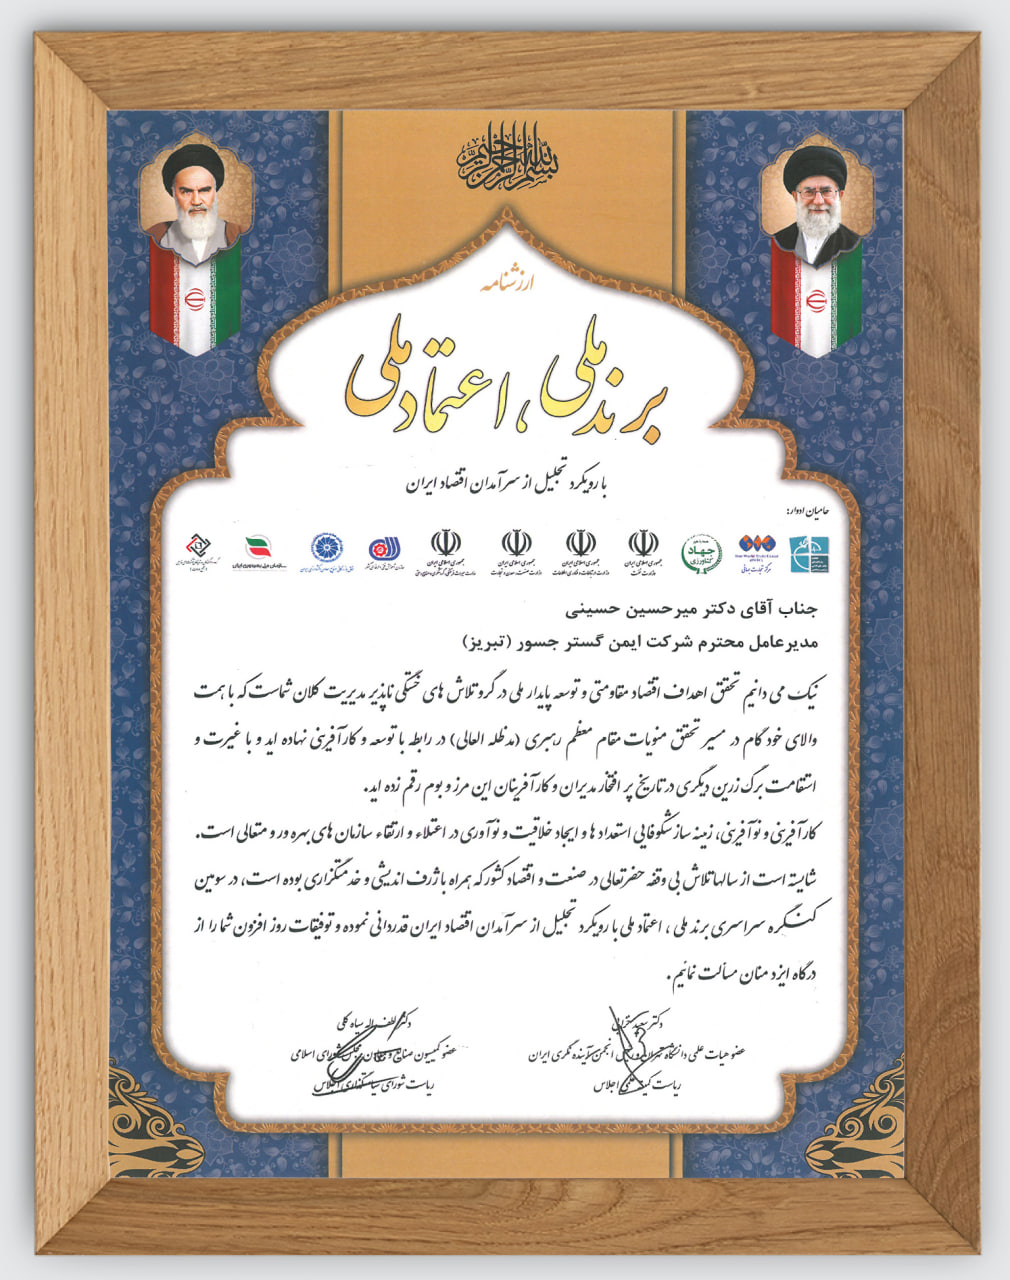 بسم الله الرحمن الرحیم
ارزشنامه
برند ملی، اعتماد ملی
با رویکرد تجلیل از سرآمدان اقتصاد ایران
حامیان ادوار:
جمهوری اسلامی ایران
جمهوری اسلامی ایران
جمهوری اسلامی ایران
جمهوری اسلامی ایران
جهاد
کشاورزی
مرکز تجارت جهانی
جناب آقای دکتر میرحسین حسینی
مدیرعامل محترم شرکت ایمن گستر جسور (تبریز)
نیک می دانیم تحقق اهداف اقتصاد مقاومتی و توسعه پایدار ملی در گرو تلاش های خستگی ناپذیر مدیریت کلان شماست که با همت
والای خود گام در مسیر تحقق منویات مقام معظم رهبری (مدظله العالی) در رابطه با توسعه و کارآفرینی نهاده اید و با غیرت و
استقامت برگ زرین دیگری در تاریخ پر افتخار مدیران و کارآفرینان این مرز و بوم رقم زده اید.
کارآفرینی و نوآفرینی، زمینه ساز شکوفایی استعداد ها و ایجاد خلاقیت و نوآوری در اعتلاء و ارتقاء سازمان های بهره ور و متعالی است.
شایسته است از سالها تلاش بی وقفه حضرتعالی در صنعت و اقتصاد کشور که همراه با ژرف اندیشی و خدمتگزاری بوده است، در سومین
کنگره سراسری برند ملی ، اعتماد ملی با رویکرد تجلیل از سرآمدان اقتصاد ایران قدردانی نموده و توفیقات روز افزون شما را از
درگاه ایزد منان مسألت نمائیم.
دکتر سعید
عضو هیات علمی دانشگاه تهران و انجمن آینده نگری ایران
ریاست کمیته علمی اجلاس
دکتر لطف اله سیاه کلی
عضو کمیسیون صنایع و معادن مجلس شورای اسلامی
ریاست شورای سیاستگذاری اجلاس